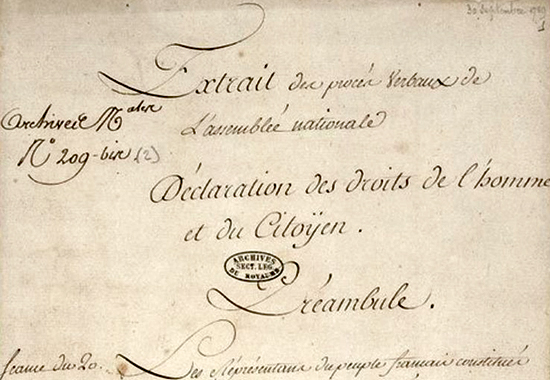 30 Septembre 1789
Extrait des procès Verbaux de
L'assemblée nationale
Archives Nales
No 209-bis (2)
Déclaration des droits de l'homme
et du Citoÿen.
ARCHIVES
SECT. LEG.
DU ROYAUME
Préambule.
Séance du 20.
Les Représentans du peuple francais constitués